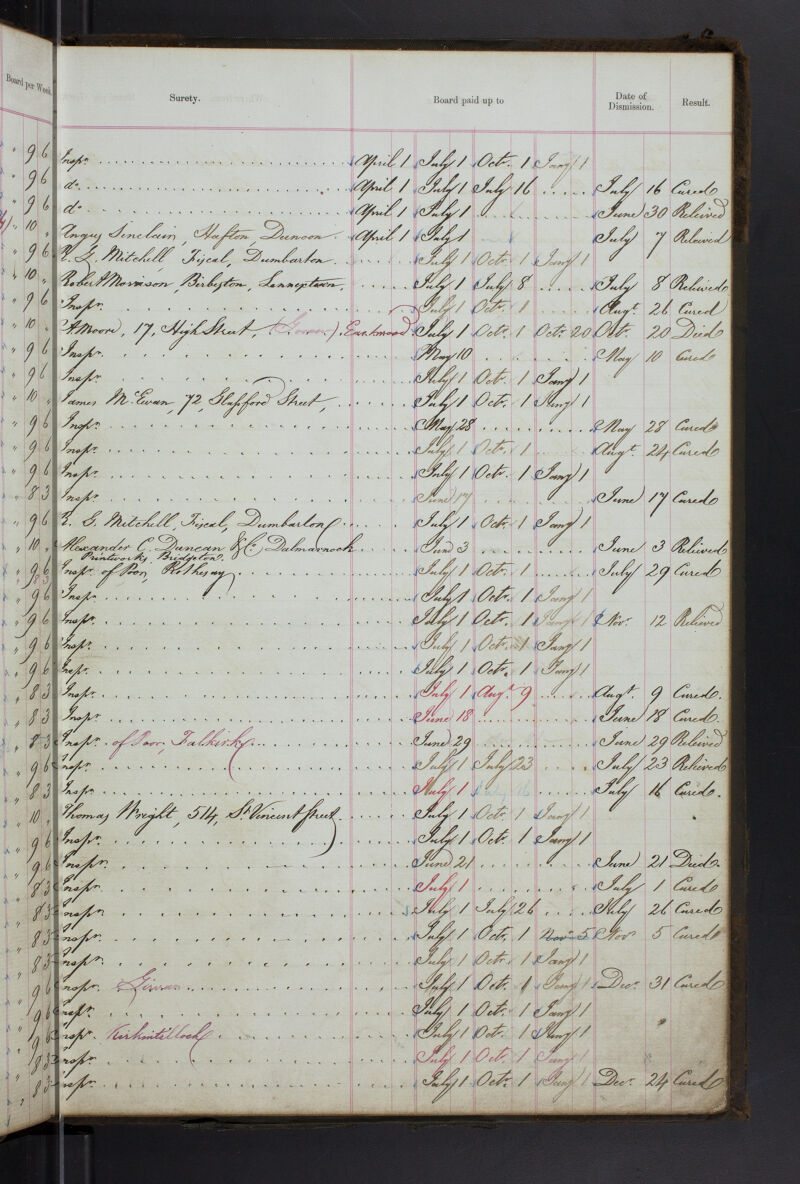 Board per Week. Surety. Board paid up to Date of Dismission. Result.
" 9 6 Inspr. April 1 July 1 Octr. 1 Jany 1
" 9 6 do. April 1 July 1 July 16 July 16 Cured
" 9 6 do. April 1 July 1 June 30 Relieved
" 10 " Angus Sinclair, Hafton, Dunoon April 1 July 1 July 7 Relieved
" 9 6 Mitchell, Fiscal, Dumbarton. July 1 Octr. 1 Jany 1
" 10 " Robert Morrison, July 1 July 8 July 8 Relieved
" 9 6 Inspr. July 1 Oct. 1 Augt. 26 Cured
" 10 " A. Moore, 17, High Street, July 1 Octr. 1 Octr. 20 Oct. 20 Died
" 9 6 Inspr. May 10 May 10 Cured
" 9 6 Inspr. July 1 Oct. 1 Jany 1
" 10 " James McEwan, 72, Glassford Street, July 1 Octr. 1 Jany 1
" 9 6 Inspr. May 28 May 28 Cured
" 9 6 Inspr. July 1 Octr. 1 Augt. 24 Cured
" 9 6 Inspr. July 1 Octr. 1 Jany 1
" 8 3 Inspr. June 17 June 17 Cured
" 9 6 Mitchell, Fiscal, Dumbarton July 1 Octr. 1 Jany 1
" 10 " Alexander C. Duncan & Co. Dalmarnock June 3 June 3 Relieved
Printworks, Bridgeton.
" 9 6 Inspr. of Poor, Rothesay July 1 Oct. 1 July 29 Cured
8 3
" 9 6 Inspr. July 1 Oct. 1 Jany 1
" 9 6 Inspr. July 1 Octr. 1 Jany 1 Novr. 12 Relieved
" 9 6 Inspr. July 1 Octr. 1 Jany 1
" 9 6 Inspr. July 1 Octr. 1 Jany 1
" 8 3 Inspr. July 1 Augt. 9 Augt. 9 Cured.
" 8 3 Inspr. June 18 June 18 Cured.
" 8 3 Inspr. of Poor, Falkirk June 29 June 29 Relieved
" 9 6 Inspr. July 1 July 23 July 23 Relieved
" 8 3 Inspr. July 1 July 16 July 16 Cured.
" 10 " Thomas Wright, 514, St. Vincent Street July 1 Octr. 1 Jany 1
" 9 6 Inspr. July 1 Octr. 1 Jany 1
" 9 6 Inspr. June 21 June 21 Died.
" 8 3 Inspr. July 1 July 1 Cured
" 8 3 Inspr. July 1 July 26 July 26 Cured
" 8 3 Inspr. July 1 Octr. 1 Novr. 5 Novr 5 Cured
" 8 3 Inspr. July 1 Octr. 1 Jany 1
" 9 6 Inspr. Girvan July 1 Octr. 1 Jany 1 Decr. 31 Cured
" 9 6 Inspr. July 1 Octr. 1 Jany 1
" 9 6 Inspr. Kirkintilloch July 1 Octr. 1 Jany 1
" 8 3 Inspr. July 1 Octr. 1 Jany 1
" 8 3 Inspr. July 1 Octr. 1 Jany 1 Decr. 24 Cured